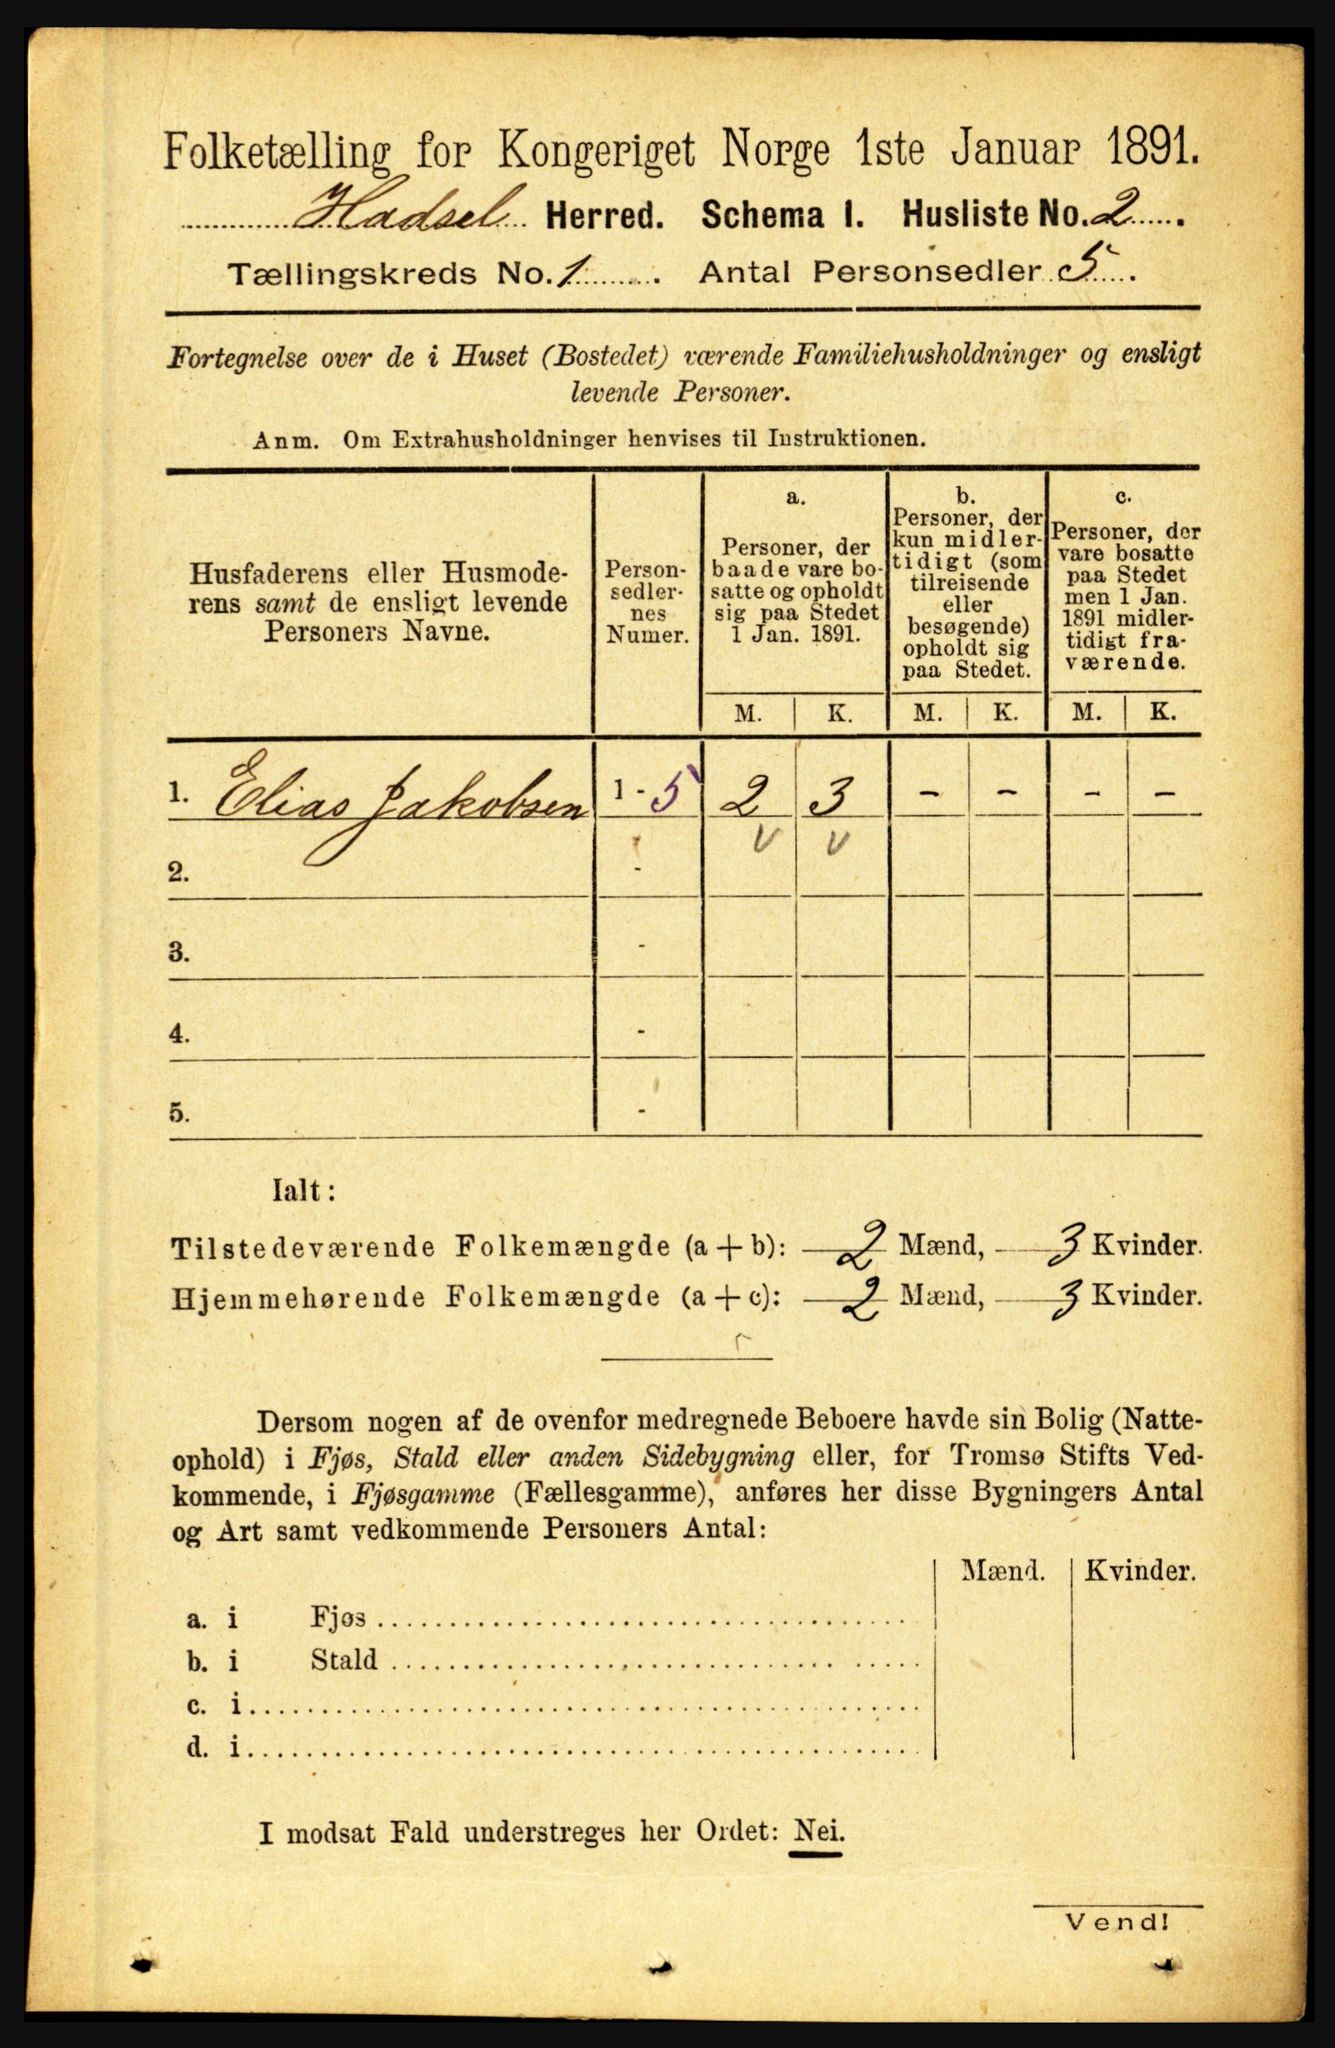 Folketælling for Kongeriget Norge 1ste Januar 1891.
Hadsel Herred. Schema I. Husliste No. 2.
Tællingskreds No. 1. Antal Personsedler 5.
Fortegnelse over de i Huset (Bostedet) værende Familiehusholdninger og ensligt
levende Personer.
Anm. Om Extrahusholdninger henvises til Instruktionen.
Husfaderens eller Husmode-
rens samt de ensligt levende
Personers Navne.
Person-
sedler-
nes
Numer.
a.
Personer, der
baade vare bo-
satte og opholdt
sig paa Stedet
1 Jan. 1891.
b.
Personer, der
kun midler-
tidigt (som
tilreisende
eller
besøgende)
opholdt sig
paa Stedet.
c.
Personer, der
vare bosatte
paa Stedet
men 1 Jan.
1891 midler-
tidigt fra-
værende.
M. K. M. K. M. K.
1. Elias Jakobsen 1 - 5 2 3 - - - -
2. -
3. -
4. -
5. -
Ialt:
Tilstedeværende Folkemængde (a + b): 2 Mænd, 3 Kvinder.
Hjemmehørende Folkemængde (a + c): 2 Mænd, 3 Kvinder.
Dersom nogen af de ovenfor medregnede Beboere havde sin Bolig (Natte-
ophold) i Fjøs, Stald eller anden Sidebygning eller, for Tromsø Stifts Ved-
kommende, i Fjøsgamme (Fællesgamme), anføres her disse Bygningers Antal
og Art samt vedkommende Personers Antal:
Mænd. Kvinder.
a. i Fjøs
b. i Stald
c. i
d. i
I modsat Fald understreges her Ordet: Nei.
Vend!